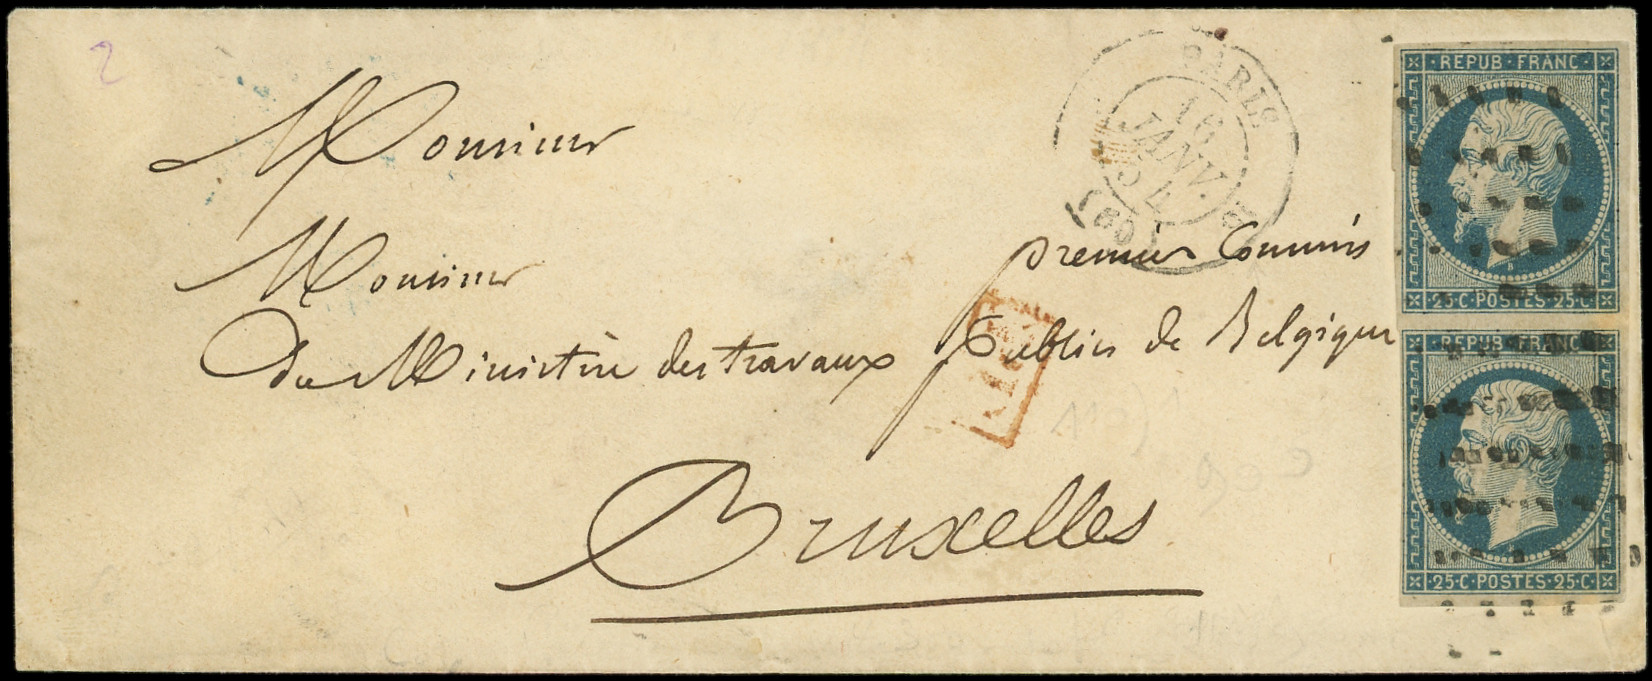 2
PARIS
16
JANV.
54
(60)
REPUB·FRANC·
25·C·POSTES·25·C·
REPUB·FRANC·
25·C·POSTES·25·C·
Monsieur
Monsieur premier Commis
du Ministère des travaux Publics de Belgique
Bruxelles